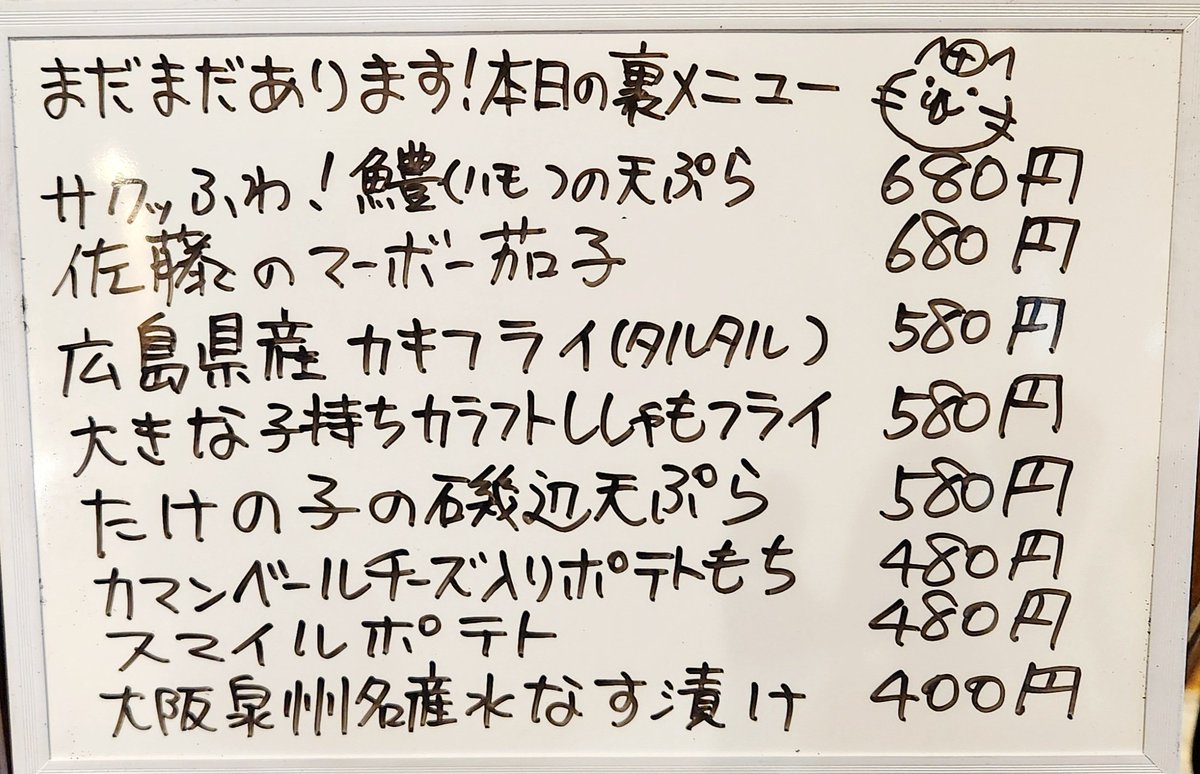 まだまだあります!本日の裏メニュー
サクッふわ!鱧(ハモ)の天ぷら 680円
佐藤のマーボー茄子 680円
広島県産カキフライ(タルタル) 580円
大きな子持ちカラフトししゃもフライ 580円
たけの子の磯辺天ぷら 580円
カマンベールチーズ入りポテトもち 480円
スマイルポテト 480円
大阪泉州名産水なす漬け 400円